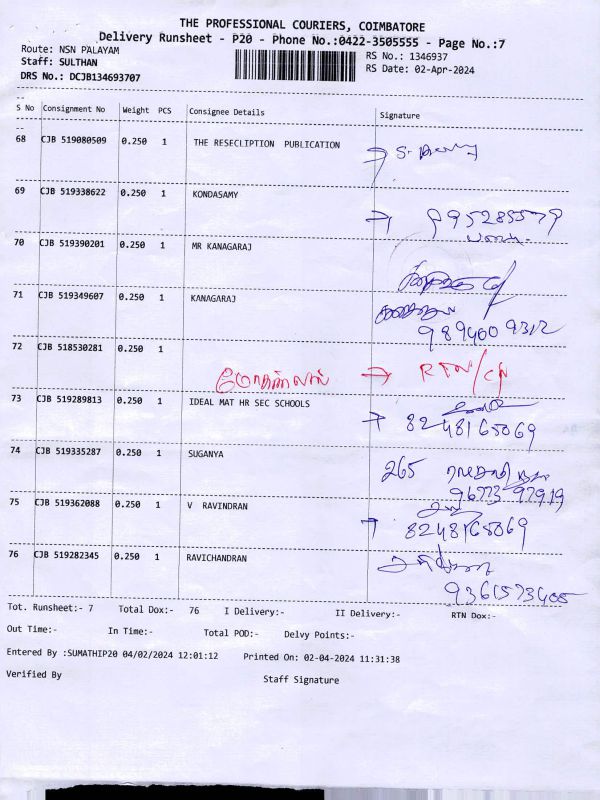 THE PROFESSIONAL COURIERS, COIMBATORE
Delivery Runsheet - P20 - Phone No.:0422-3505555 - Page No.:7
Route: NSN PALAYAM
RS No.: 1346937
Staff: SULTHAN
RS Date: 02-Apr-2024
DRS No.: DCJB134693707
S No Consignment No Weight PCS Consignee Details Signature
68 CJB 519080509 0.250 1 THE RESECLIPTION PUBLICATION
69 CJB 519338622 0.250 1 KONDASAMY
70 CJB 519390201 0.250 1 MR KANAGARAJ
71 CJB 519349607 0.250 1 KANAGARAJ
9894009312
72 CJB 518530281 0.250 1
→ RTN/CN
73 CJB 519289813 0.250 1 IDEAL MAT HR SEC SCHOOLS
→ 8248165069
74 CJB 519335287 0.250 1 SUGANYA 265
96773 97919
75 CJB 519362088 0.250 1 V RAVINDRAN
→ 8248165069
76 CJB 519282345 0.250 1 RAVICHANDRAN
9361573405
Tot. Runsheet:- 7 Total Dox:- 76 I Delivery:- II Delivery:- RTN Dox:-
Out Time:- In Time:- Total POD:- Delvy Points:-
Entered By :SUMATHIP20 04/02/2024 12:01:12 Printed On: 02-04-2024 11:31:38
Verified By Staff Signature